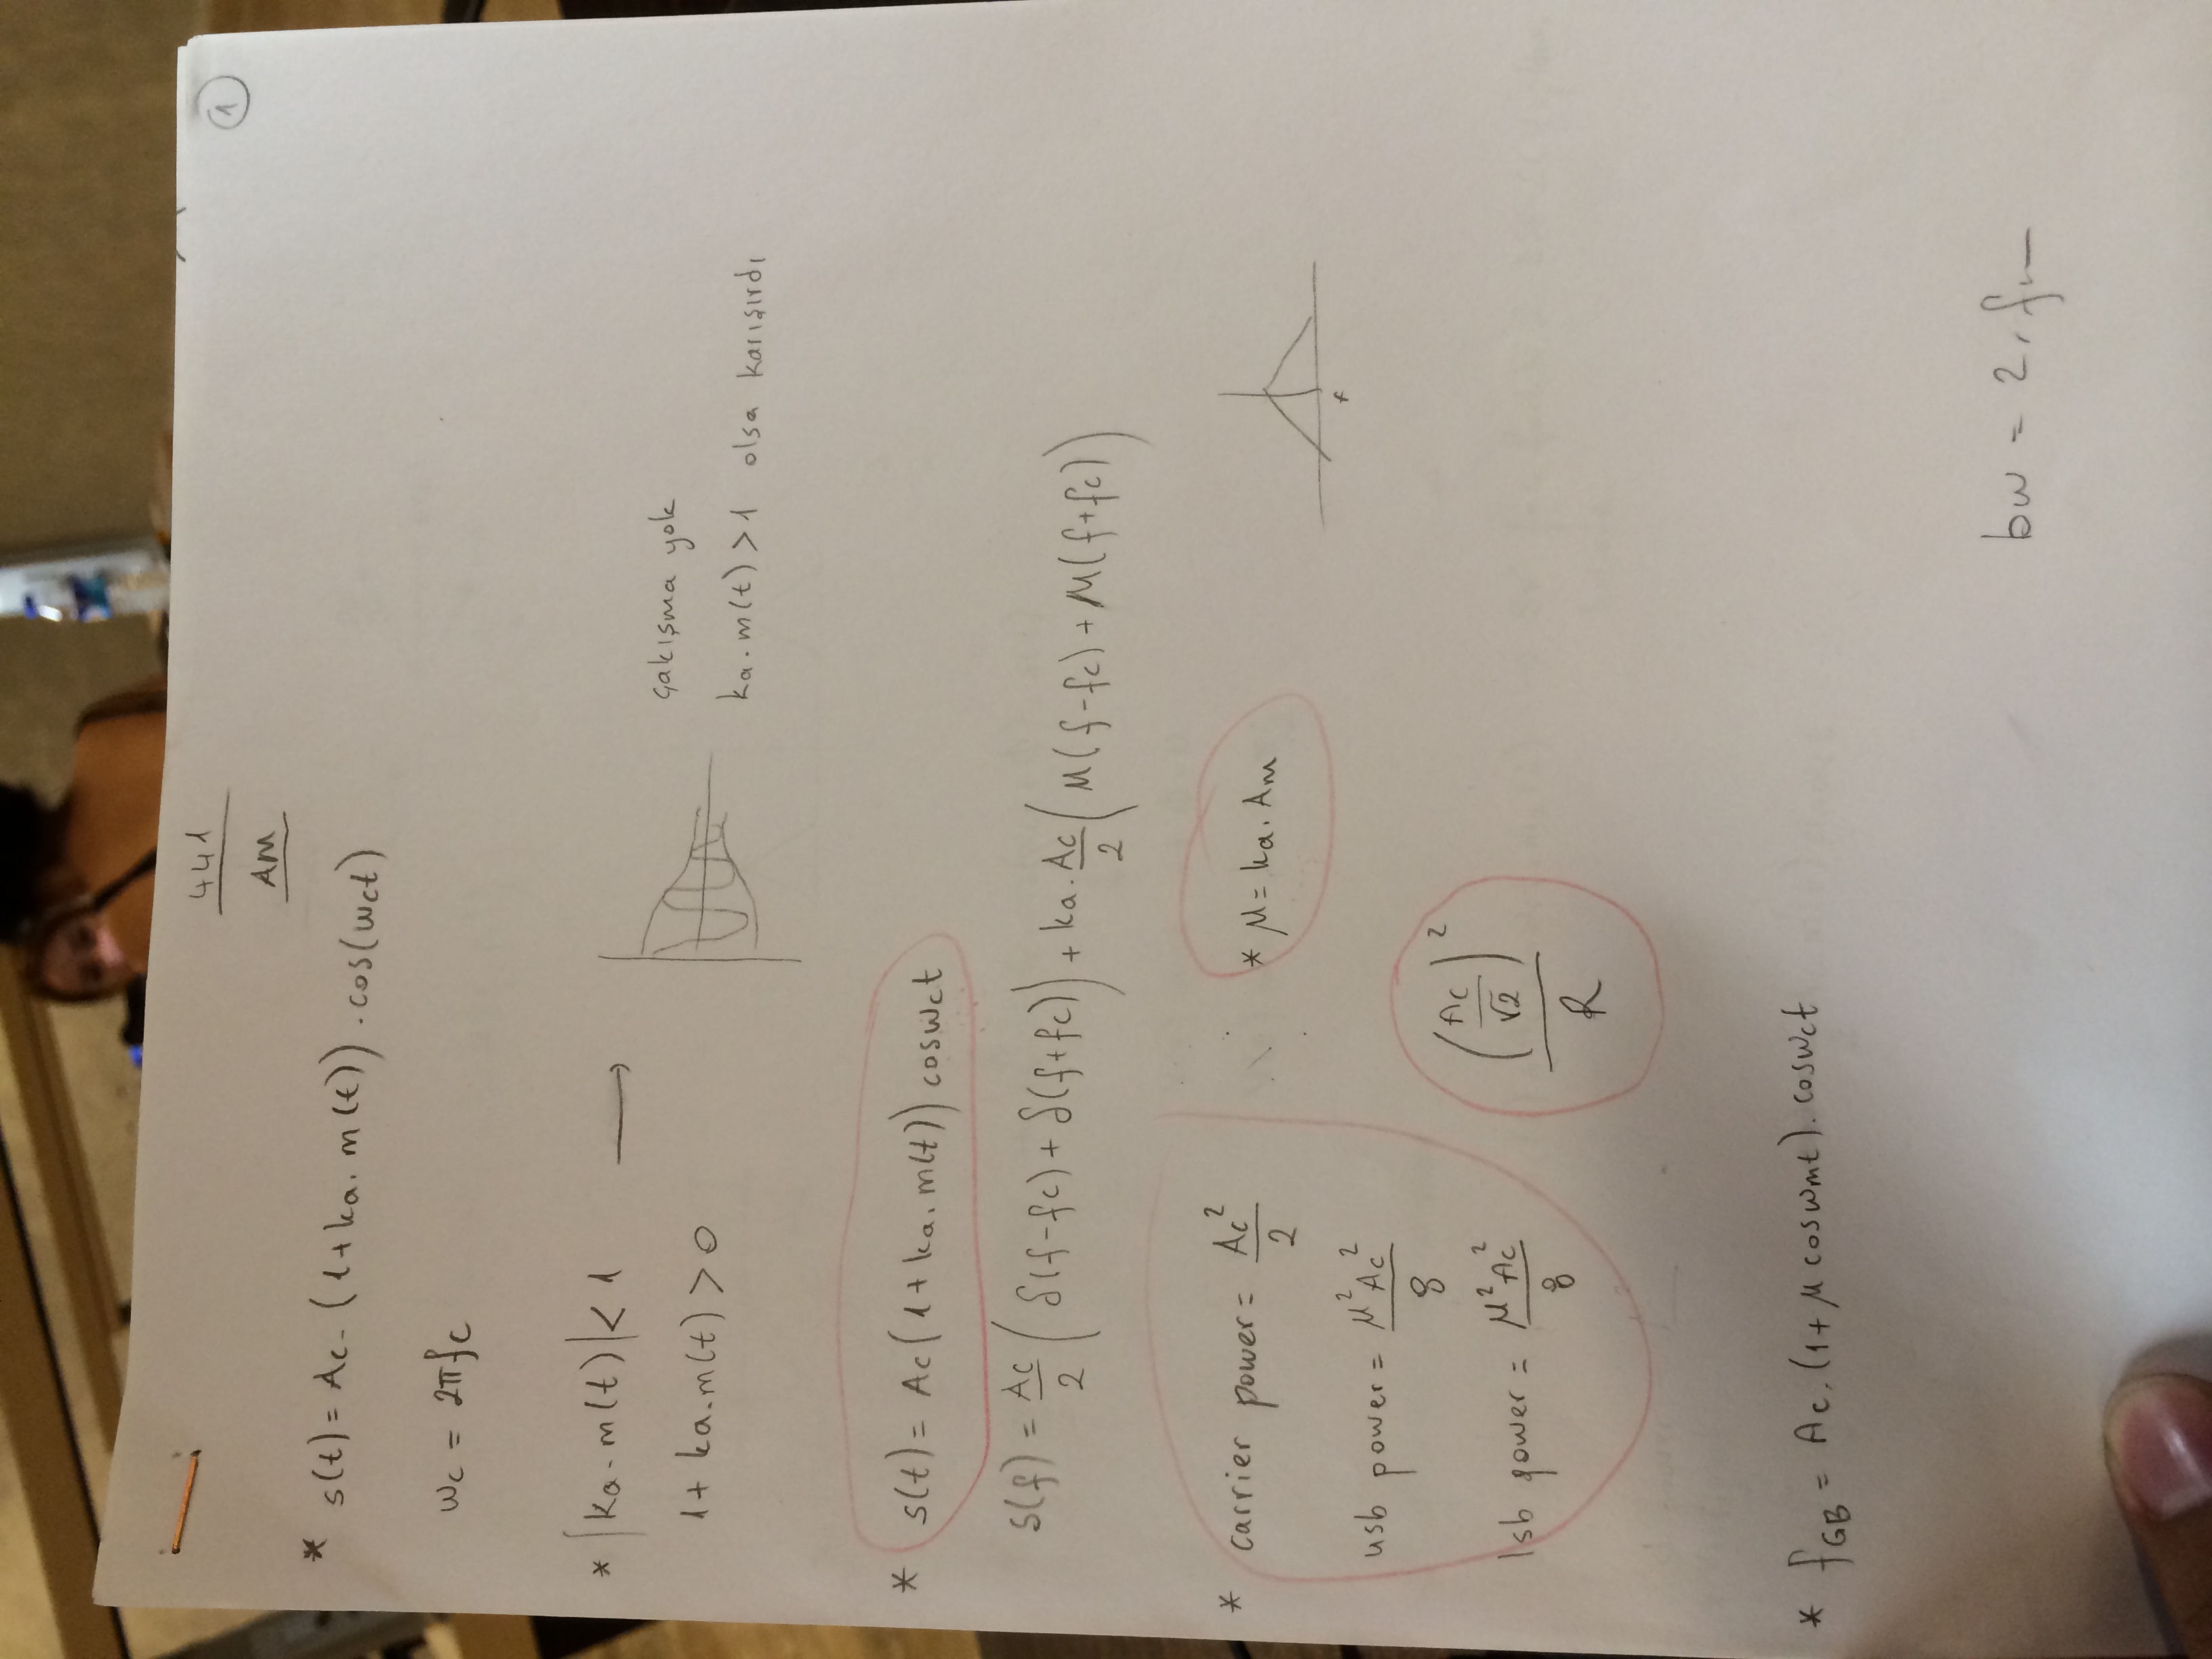 441
1
AM
* s(t) = Ac. (1+ka.m(t)).cos(wct)
wc = 2πfc
* |ka.m(t)| < 1 →
1+ ka.m(t) > 0
çakışma yok
ka.m(t) > 1 olsa karışırdı
* s(t) = Ac(1+ka.m(t)) coswct
S(f) = Ac/2 (δ(f-fc) + δ(f+fc)) + ka.Ac/2 (M(f-fc) + M(f+fc))
* carrier power = Ac²/2
* μ = ka.Am
f
usb power = μ²Ac²/8
(Ac/√2)²/R
lsb power = μ²Ac²/8
* fGB = Ac.(1+μcoswmt).coswct
bw = 2.fm